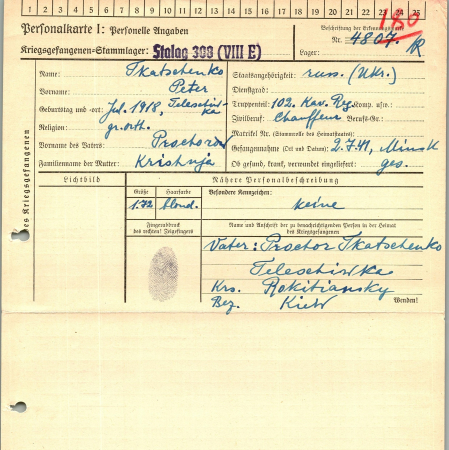 1 2 3 4 5 6 7 8 9 10 11 12 13 14 15 16 17 18 19 20 21 22 23 24 25
180
Personalkarte I: Personelle Angaben
Kriegsgefangenen-Stammlager: Stalag 308 (VIII E)
Beschriftung der Erkennungsmarke
Nr. 4807.
Lager:
des Kriegsgefangenen
Name: Tkatschenko
Vorname: Peter
Geburtstag und -ort: Jul. 1918, Teleschiwka
Religion: gr. orth.
Vorname des Vaters: Proctor
Familienname der Mutter: Krishnja
Staatsangehörigkeit: russ. (Ukr.)
Dienstgrad:
Truppenteil: 102. Kav. Reg. Komp. usw.:
Zivilberuf: Chauffeur Berufs-Gr.:
Matrikel Nr. (Stammrolle des Heimatstaates):
Gefangennahme (Ort und Datum): 2.7.41, Minsk
Ob gesund, krank, verwundet eingeliefert: ges.
Lichtbild
Nähere Personalbeschreibung
Größe
Haarfarbe
Besondere Kennzeichen:
1.72
blond.
keine
Fingerabdruck
des rechten Zeigefingers
Name und Anschrift der zu benachrichtigenden Person in der Heimat
des Kriegsgefangenen
Vater: Proctor Tkatschenko
Teleschiwka
Krs. Rokitiansky
Bez. Kiew
Wenden!